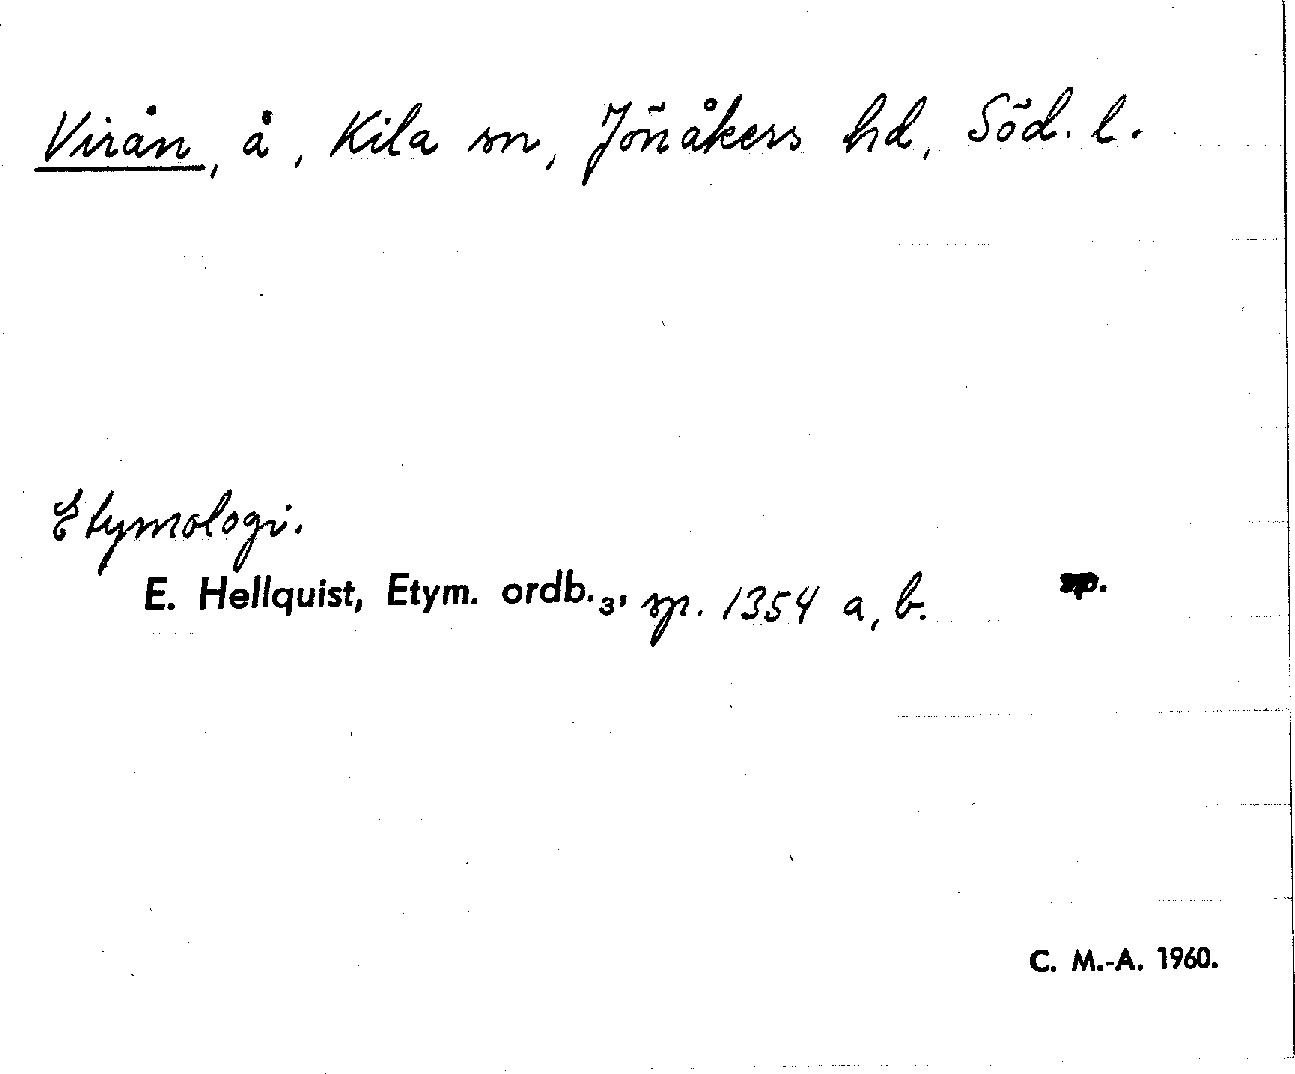 Virån, å, Kila sn, Jönåkers hd, Söd. l.
Etymologi.
E. Hellquist, Etym. ordb.₃, sp. 1354 a, b. sp.
C. M.-A. 1960.